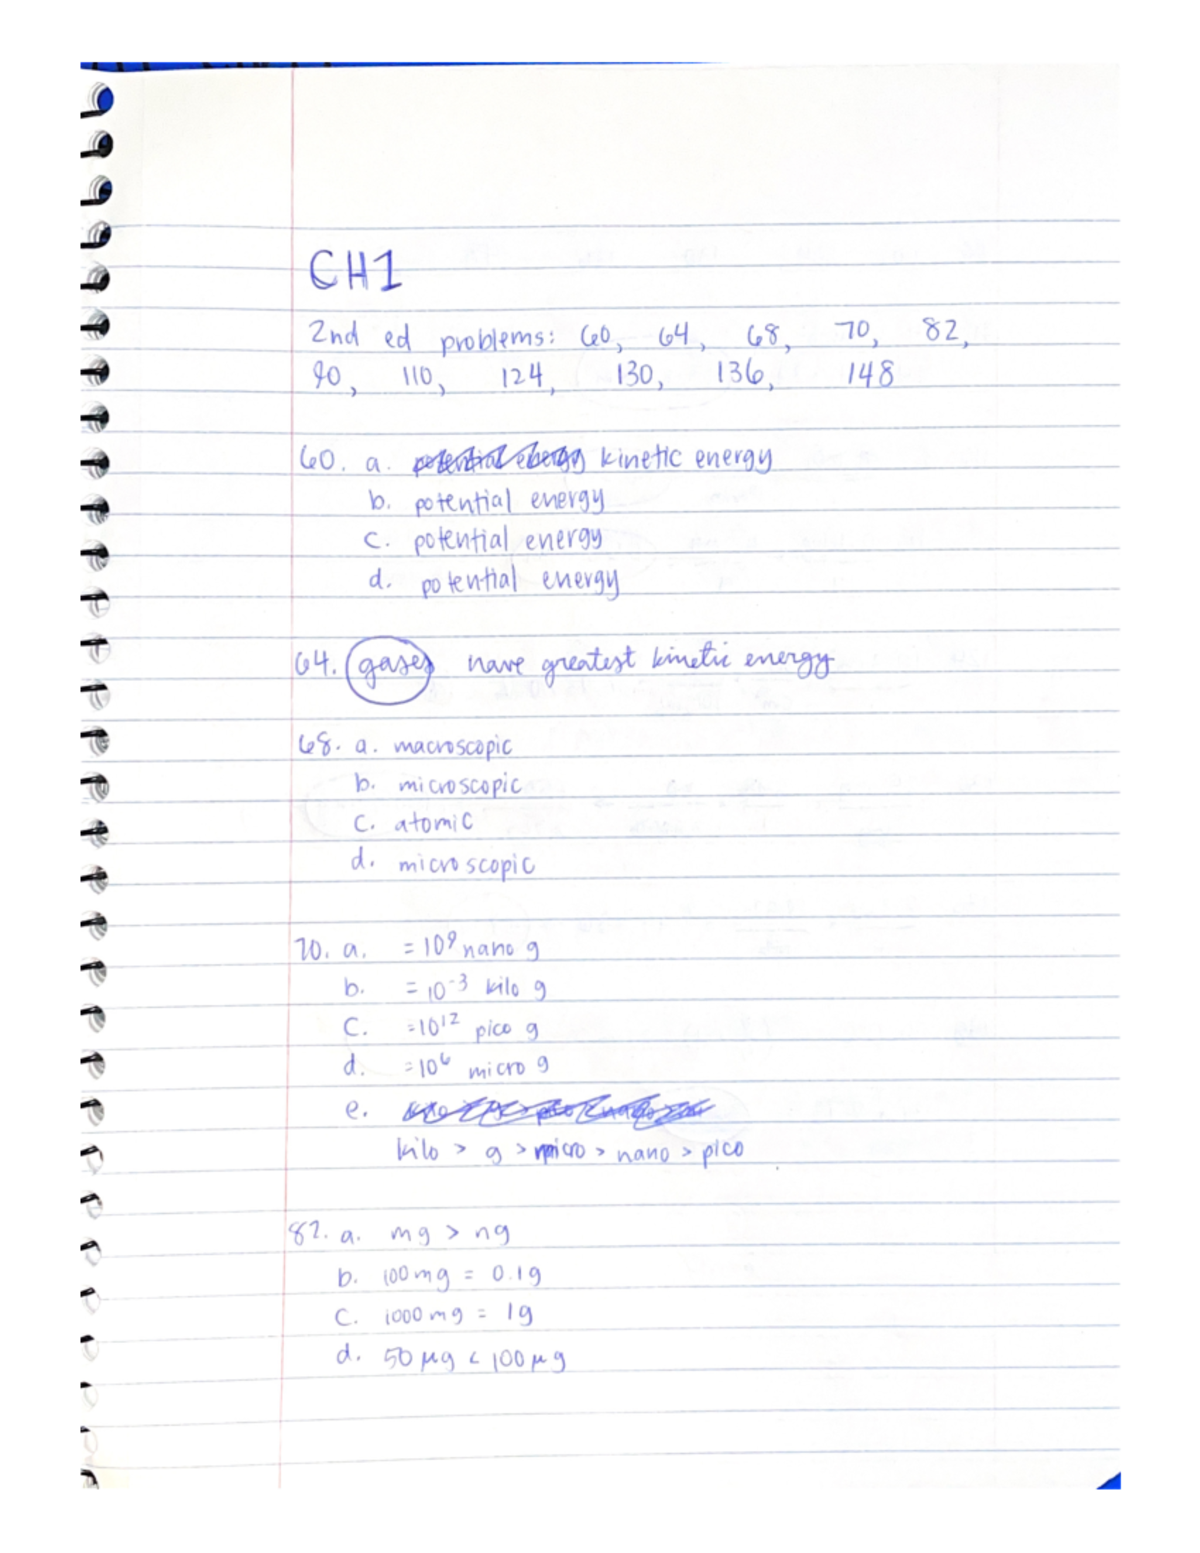 CH1
2nd ed problems: 60, 64, 68, 70, 82,
90, 110, 124, 130, 136, 148
60. a. potential energy kinetic energy
b. potential energy
c. potential energy
d. potential energy
64. gases have greatest kinetic energy
68. a. macroscopic
b. microscopic
c. atomic
d. microscopic
70. a. = 10⁹ nano g
b. = 10⁻³ kilo g
c. = 10¹² pico g
d. = 10⁶ micro g
e.
kilo > g > micro > nano > pico
82. a. mg > ng
b. 100 mg = 0.1g
c. 1000 mg = 1g
d. 50 µg < 100 µg